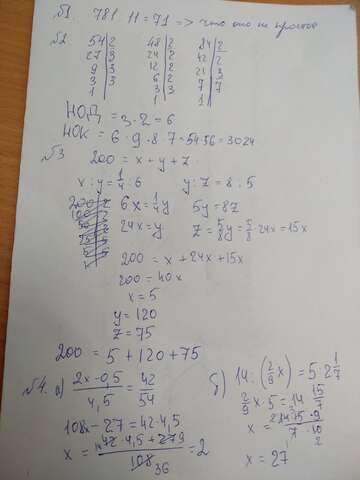 №1. 781 : 11 = 71 => что оно не простое
№2
54|2 48|2 84|2
27|3 24|2 42|2
9|3 12|2 21|3
3|3 6|2 7|7
1 3|3 1
1
НОД = 3 · 2 = 6
НОК = 6 · 9 · 8 · 7 = 54 · 56 = 3024
№3
200 = x + y + z
x : y = 1/4 : 6 y : z = 8 : 5
6x = 1/4 y 5y = 8z
24x = y z = 5/8 y = 5/8 · 24x = 15x
200 = x + 24x + 15x
200 = 40x
x = 5
y = 120
z = 75
200 = 5 + 120 + 75
№4. а) (2x - 0,5)/4,5 = 42/54
108x - 27 = 42 · 4,5
= 2
б) 14 : (2/9 x) = 5 : 2 1/7
2/9 x · 5 = 14 · 15/7
x = 27